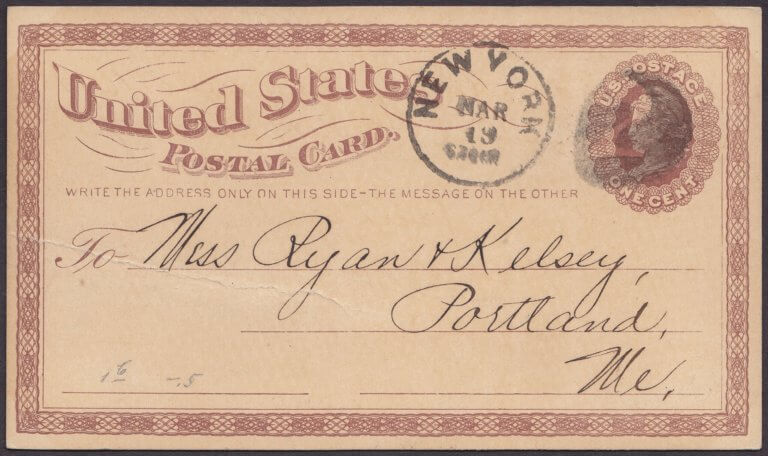 United States
POSTAL CARD.
NEW YORK
MAR
19
U.S. POSTAGE
ONE CENT
WRITE THE ADDRESS ONLY ON THIS SIDE – THE MESSAGE ON THE OTHER
To Miss Ryan & Kelsey,
Portland,
Me.